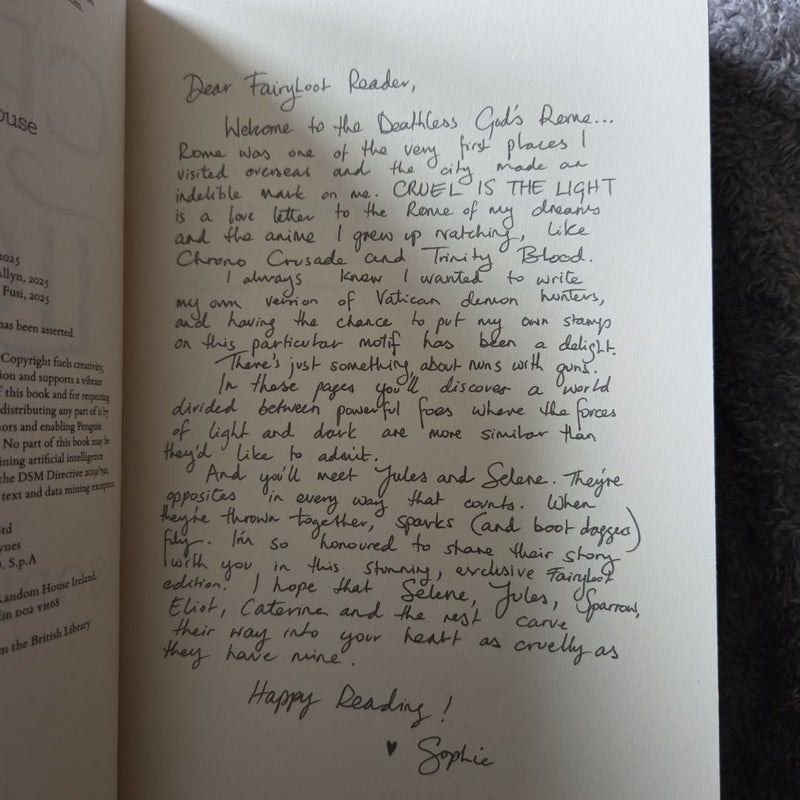 om.
ouse
2025
Allyn, 2025
Fusi, 2025
has been asserted.
Copyright fuels creativity,
ion and supports a vibrant
f this book and for respecting
distributing any part of it by
hors and enabling Penguin
No part of this book may be
ining artificial intelligence
the DSM Directive 2019/790,
text and data mining exception
td
ynes
, S.p.A
Random House Ireland,
lin D02 YH68
m the British Library
Dear FairyLoot Reader,
Welcome to the Deathless God's Rome...
Rome was one of the very first places I
visited overseas and the city made an
indelible mark on me. CRUEL IS THE LIGHT
is a love letter to the Rome of my dreams
and the anime I grew up watching, like
Chrono Crusade and Trinity Blood.
I always knew I wanted to write
my own version of Vatican demon hunters,
and having the chance to put my own stamp
on this particular motif has been a delight.
There's just something about nuns with guns.
In these pages you'll discover a world
divided between powerful foes where the forces
of light and dark are more similar than
they'd like to admit.
And you'll meet Jules and Selene. They're
opposites in every way that counts. When
they're thrown together, sparks (and boot daggers)
fly. I'm so honoured to share their story
with you in this stunning, exclusive FairyLoot
edition. I hope that Selene, Jules, Sparrow,
Eliot, Caterina and the rest carve
their way into your heart as cruelly as
they have mine.
Happy Reading!
♥ Sophie